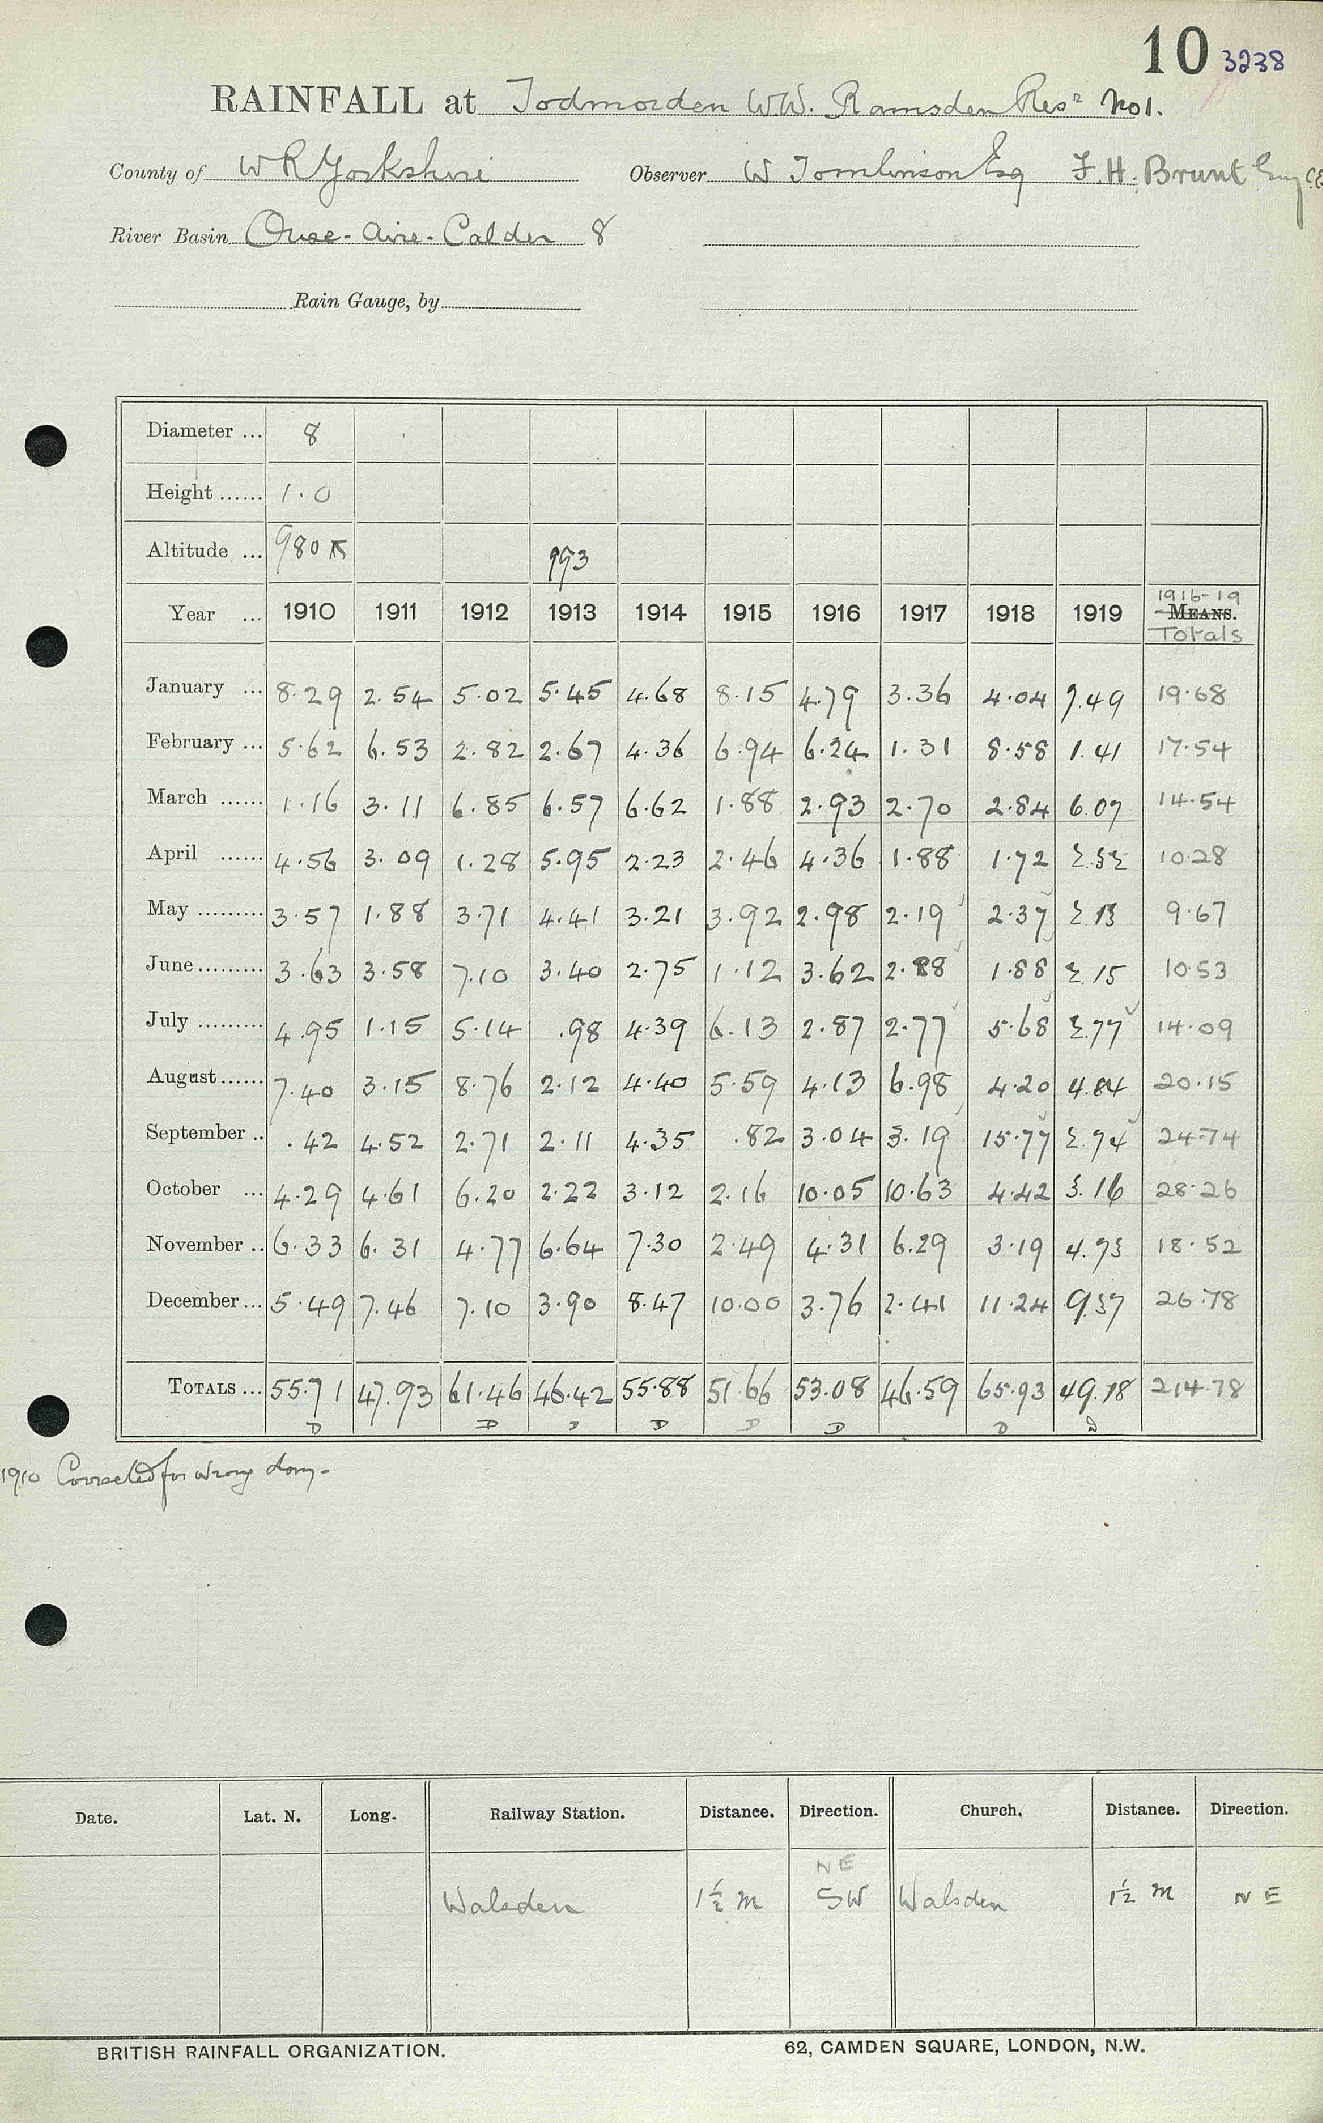 10 3238
RAINFALL at Todmorden W.W. Ramsden Resr No 1.
County of W R Yorkshire Observer W Tomlinson Esq F. H. Brunt Esq CE
River Basin Ouse - Aire - Calder 8
Rain Gauge, by
Diameter ... 8
Height ...... 1.0
Altitude ... 980 993
1916-19
Year ... 1910 1911 1912 1913 1914 1915 1916 1917 1918 1919 MEANS.
Totals
January ... 8.29 2.54 5.02 5.45 4.68 8.15 4.79 3.36 4.04 7.49 19.68
February ... 5.62 6.53 2.82 2.67 4.36 6.94 6.24 1.31 8.58 1.41 17.54
March ...... 1.16 3.11 6.85 6.57 6.62 1.88 2.93 2.70 2.84 6.07 14.54
April ...... 4.56 3.09 1.28 5.95 2.23 2.46 4.36 1.88 1.72 2.32 10.28
May ......... 3.57 1.88 3.71 4.41 3.21 3.92 2.98 2.19 2.37 2.13 9.67
June ......... 3.63 3.58 7.10 3.40 2.75 1.12 3.62 2.88 1.88 2.15 10.53
July ......... 4.95 1.15 5.14 .98 4.39 6.13 2.87 2.77 5.68 2.77 14.09
August ...... 7.40 3.15 8.76 2.12 4.40 5.59 4.13 6.98 4.20 4.84 20.15
September .. .42 4.52 2.71 2.11 4.35 .82 3.04 3.19 15.77 2.74 24.74
October ... 4.29 4.61 6.20 2.22 3.12 2.16 10.05 10.63 4.42 3.16 28.26
November .. 6.33 6.31 4.77 6.64 7.30 2.49 4.31 6.29 3.19 4.73 18.52
December ... 5.49 7.46 7.10 3.90 8.47 10.00 3.76 2.41 11.24 9.37 26.78
TOTALS ... 55.71 47.93 61.46 46.42 55.88 51.66 53.08 46.59 65.93 49.18 214.78
D D D D D D D D
1910 Corrected for wrong
Date. Lat. N. Long. Railway Station. Distance. Direction. Church. Distance. Direction.
NE
Walsden 1½ m SW Walsden 1½ m NE
BRITISH RAINFALL ORGANIZATION. 62, CAMDEN SQUARE, LONDON, N.W.